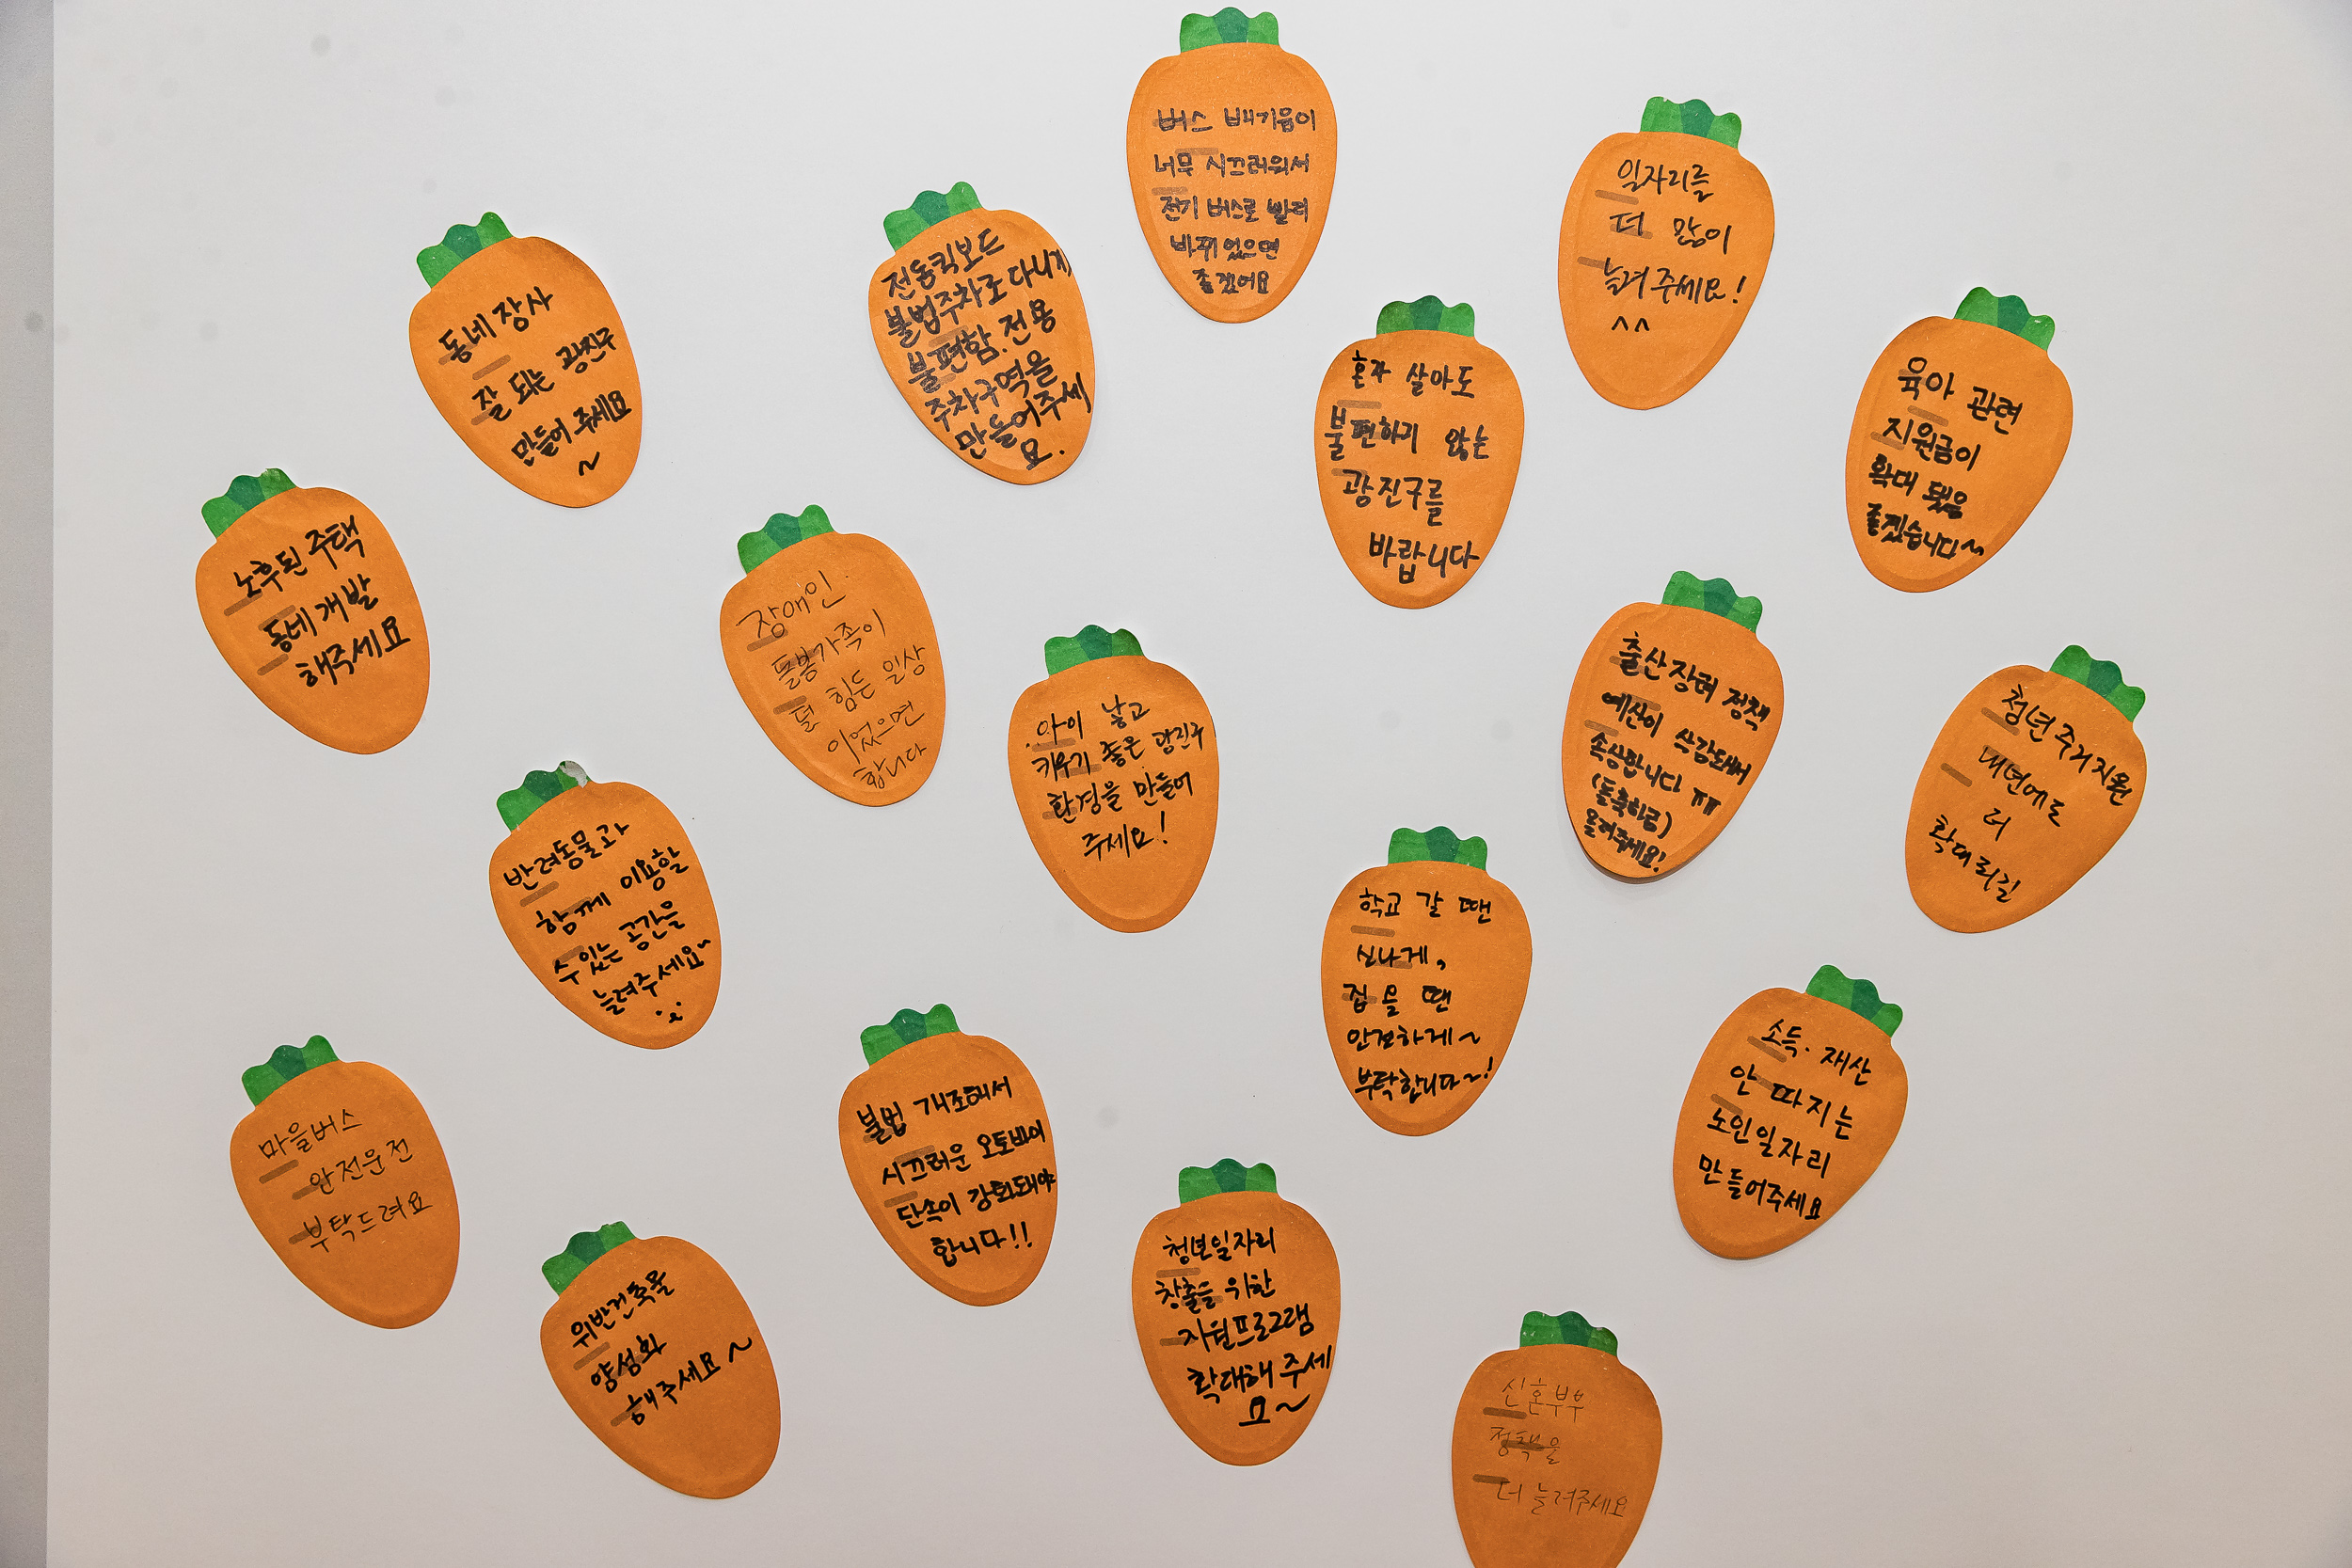 버스 배기음이
너무 시끄러워서
전기 버스로 빨리
바뀌었으면
좋겠어요
일자리를
더 많이
늘려주세요!
^^
전동킥보드
불법주차로 다니기
불편함. 전용
주차구역을
만들어주세
요.
동네 장사
잘 되는 광진구
만들어 주세요
~
혼자 살아도
불편하기 않는
광진구를
바랍니다
육아 관련
지원금이
확대 됐음
좋겠습니다~
노후된 주택
동네 개발
해주세요
장애인
돌봄가족이
덜 힘든 일상
이었으면
합니다
아이 낳고
키우기 좋은 광진구
환경을 만들어
주세요!
출산장려 정책
예산이 삭감돼서
속상합니다 ㅠㅠ
(돌축하금)
올려주세요!
청년주거지원
내년에도
더
확대되길
반려동물과
함께 이용할
수 있는 공간을
늘려주세요~
학교 갈 땐
신나게,
집 올 땐
안전하게~
부탁합니다~!
소득·재산
안 따지는
노인일자리
만들어주세요
마을버스
안전운전
부탁드려요
불법 개조해서
시끄러운 오토바이
단속이 강화돼야
합니다!!
청년일자리
창출을 위한
지원프로그램
확대해 주세
요~
위반건축물
양성화
해주세요~
신혼부부
정책을
더 늘려주세요